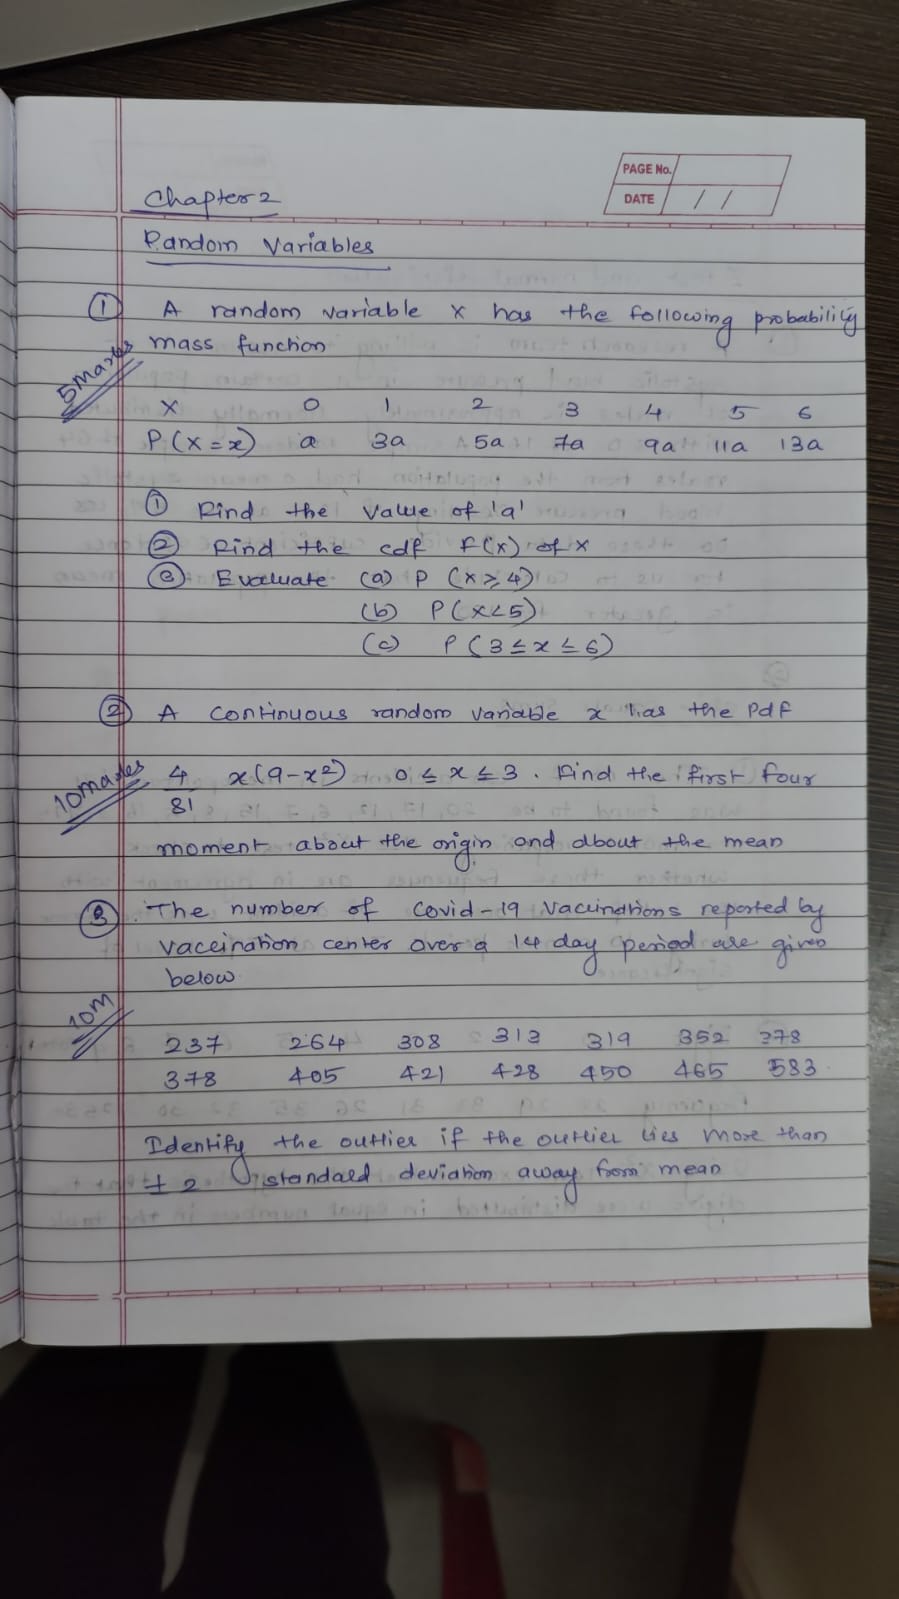 PAGE No.
DATE / /
Chapter 2
Random Variables
① A random variable x has the following probability
5 Marks mass function
X 0 1 2 3 4 5 6
P(X=x) a 3a 5a 7a 9a 11a 13a
① Find the value of 'a'
② Find the cdf F(x) of x
③ Evaluate (a) P (x ≥ 4)
(b) P(x<5)
(c) P(3 ≤ x ≤ 6)
② A continuous random variable x has the Pdf
10 marks 4/81 x(9-x²) 0 ≤ x ≤ 3. Find the first four
moment about the origin and about the mean
③ The number of Covid-19 Vaccinations reported by
vaccination center over a 14 day period are given
below
10M
237 264 308 313 319 352 378
378 405 421 428 450 465 583.
Identify the outlier if the outlier lies more than
± 2 standard deviation away from mean